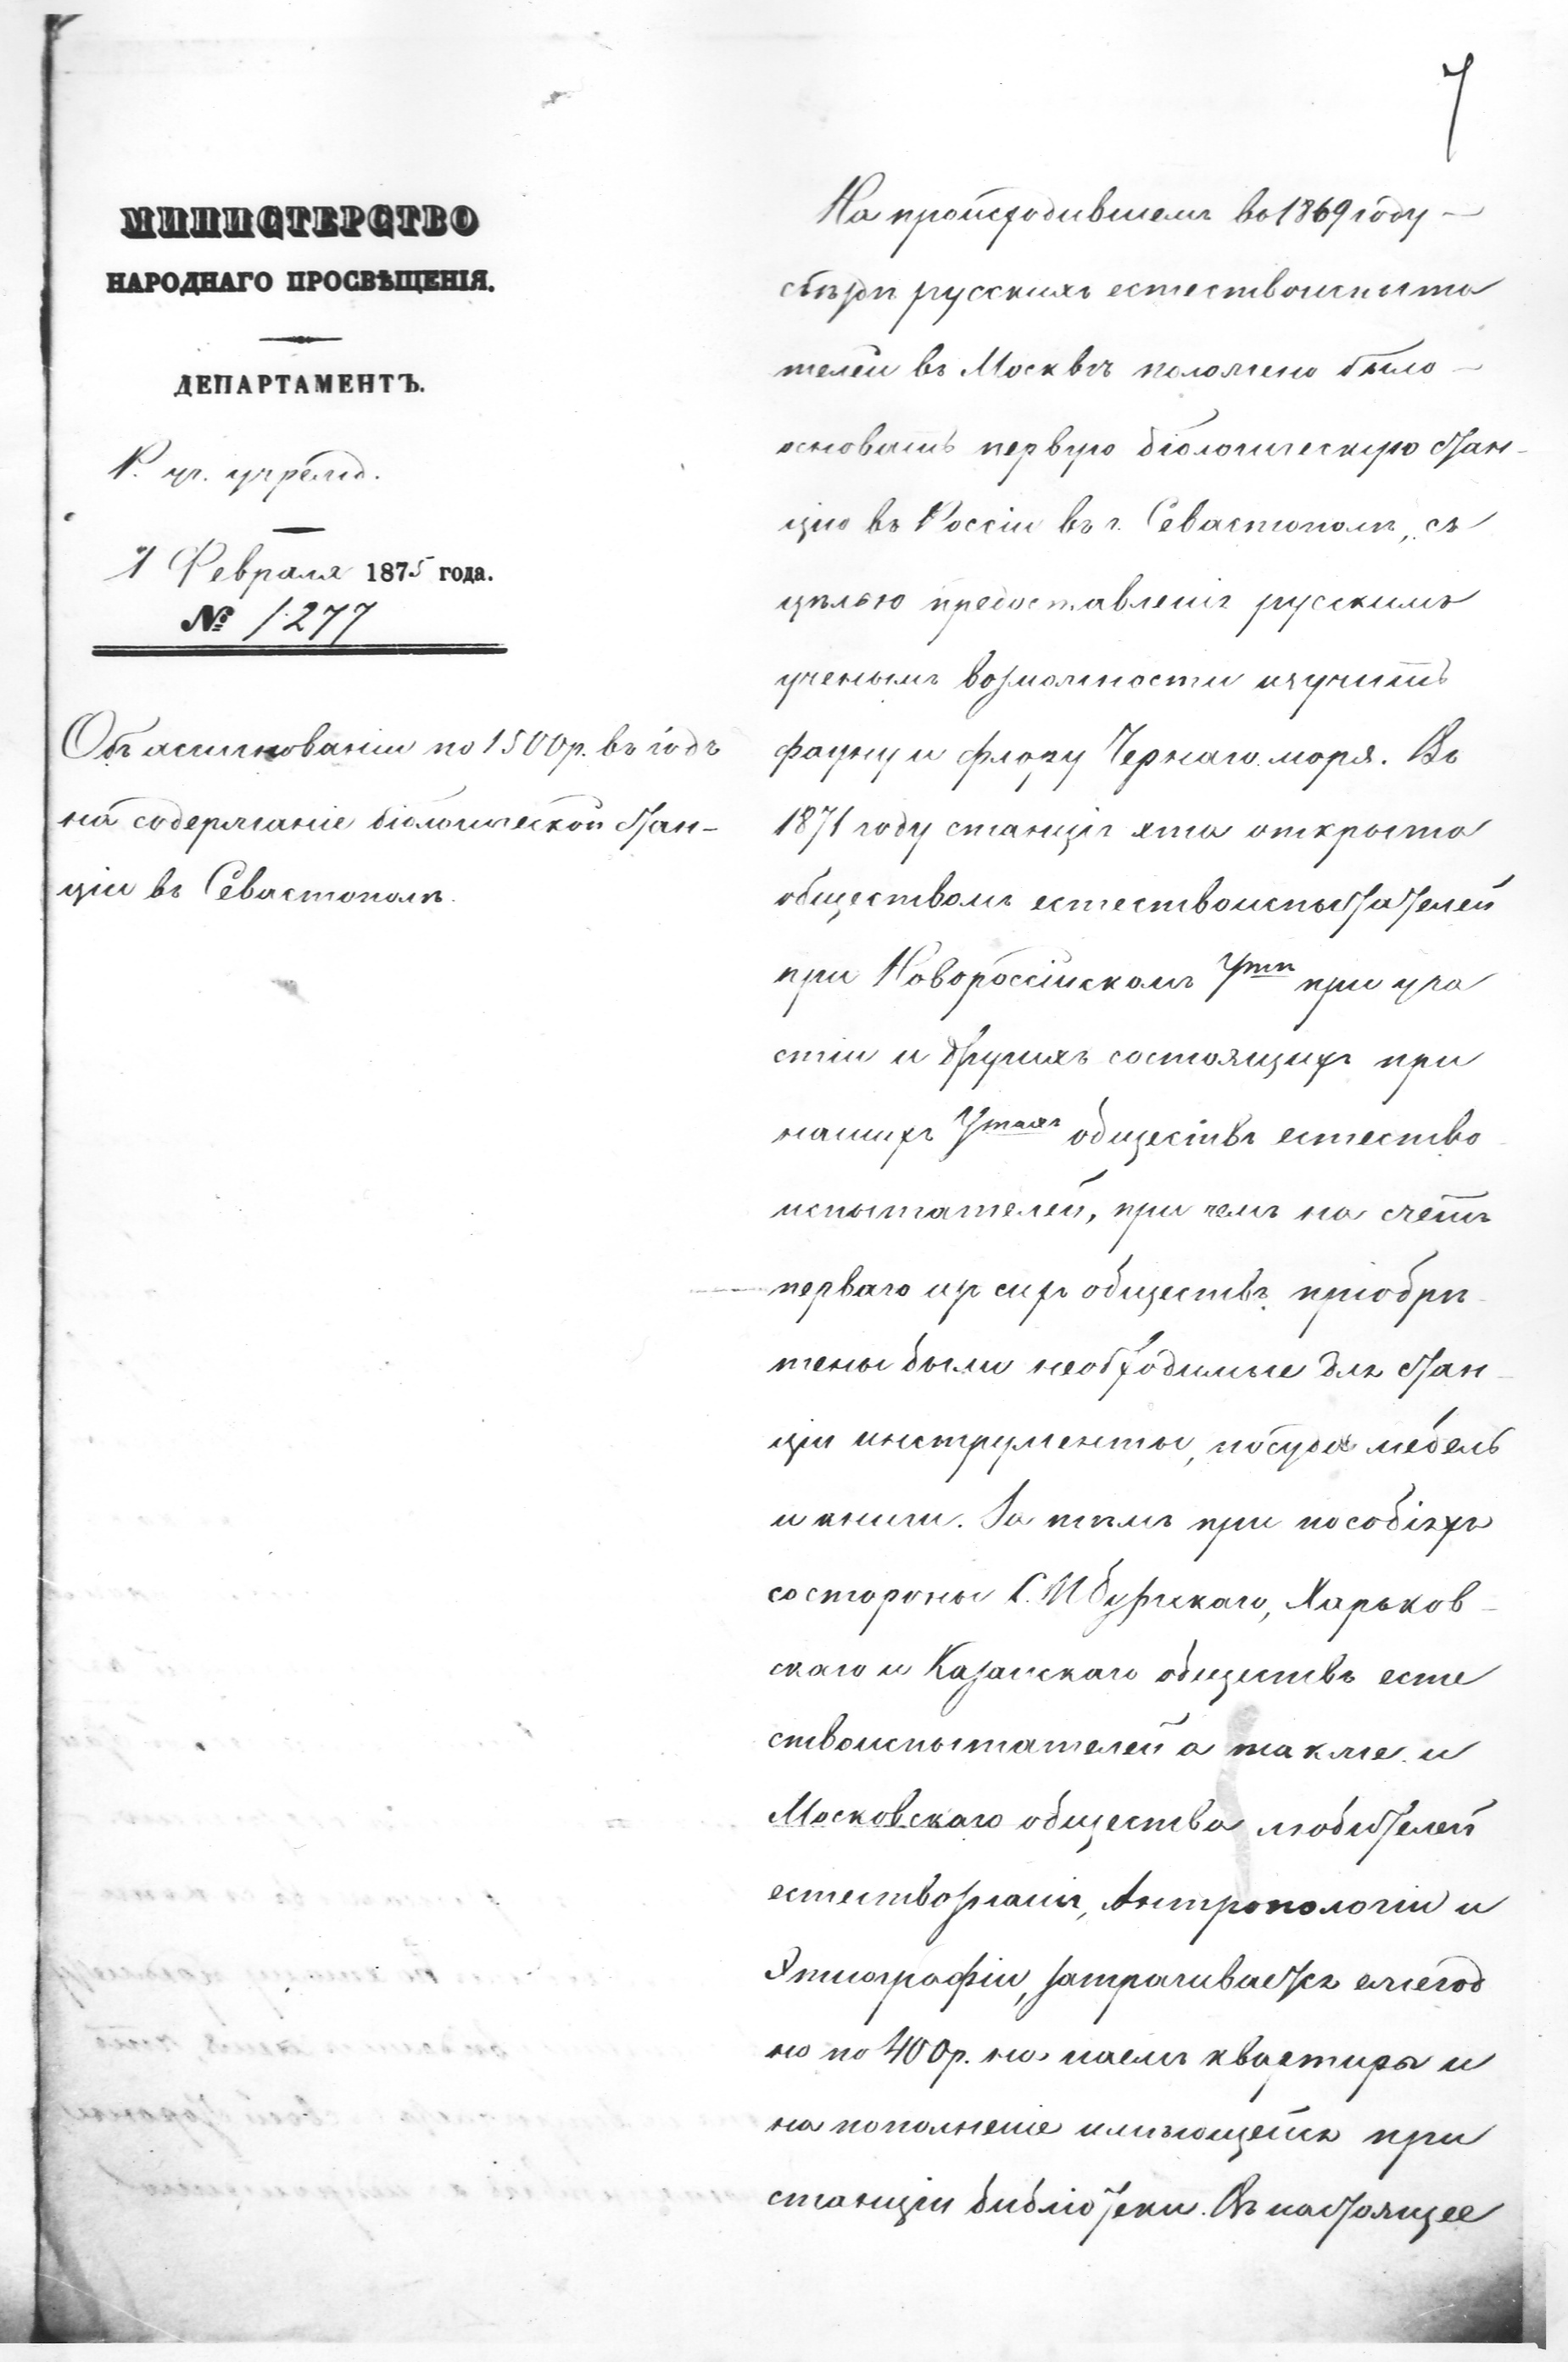 7
МИНИСТЕРСТВО
НАРОДНАГО ПРОСВѢЩЕНІЯ.
ДЕПАРТАМЕНТЪ.
Р. уч. учрежд.
Февраля 1875 года.
№ 1277
Объ ассигнованіи по 1500 р. въ годъ
на содержаніе біологической стан-
ціи въ Севастополѣ.
На происходившемъ въ 1869 году
съѣздѣ русскихъ естествоиспыта
телей въ Москвѣ положено было
основать первую біологическую стан-
цію въ Россіи въ г. Севастополѣ, съ
цѣлью предоставленія русскимъ
ученымъ возможности изучить
фауну и флору Чернаго моря. Въ
1871 году станція эта открыта
обществомъ естествоиспытателей
при Новороссійскомъ Утѣ при уча
стіи и другихъ состоящихъ при
нашихъ Утахъ обществъ естество
испытателей, при чемъ на счетъ
перваго изъ сихъ обществъ пріобрѣ
тены были необходимые для стан
ціи инструменты, посуда мебель
и книги. За тѣмъ при пособіяхъ
со стороны С. П Бургскаго, Харьков-
скаго и Казанскаго обществъ есте
ствоиспытателей а также и
Московскаго общества любителей
естествознанія, Антропологіи и
Этнографіи, затрачивается ежегод
но по 400 р. на наемъ квартиры и
на пополненіе имѣющейся при
станціи библіотеки. Въ настоящее